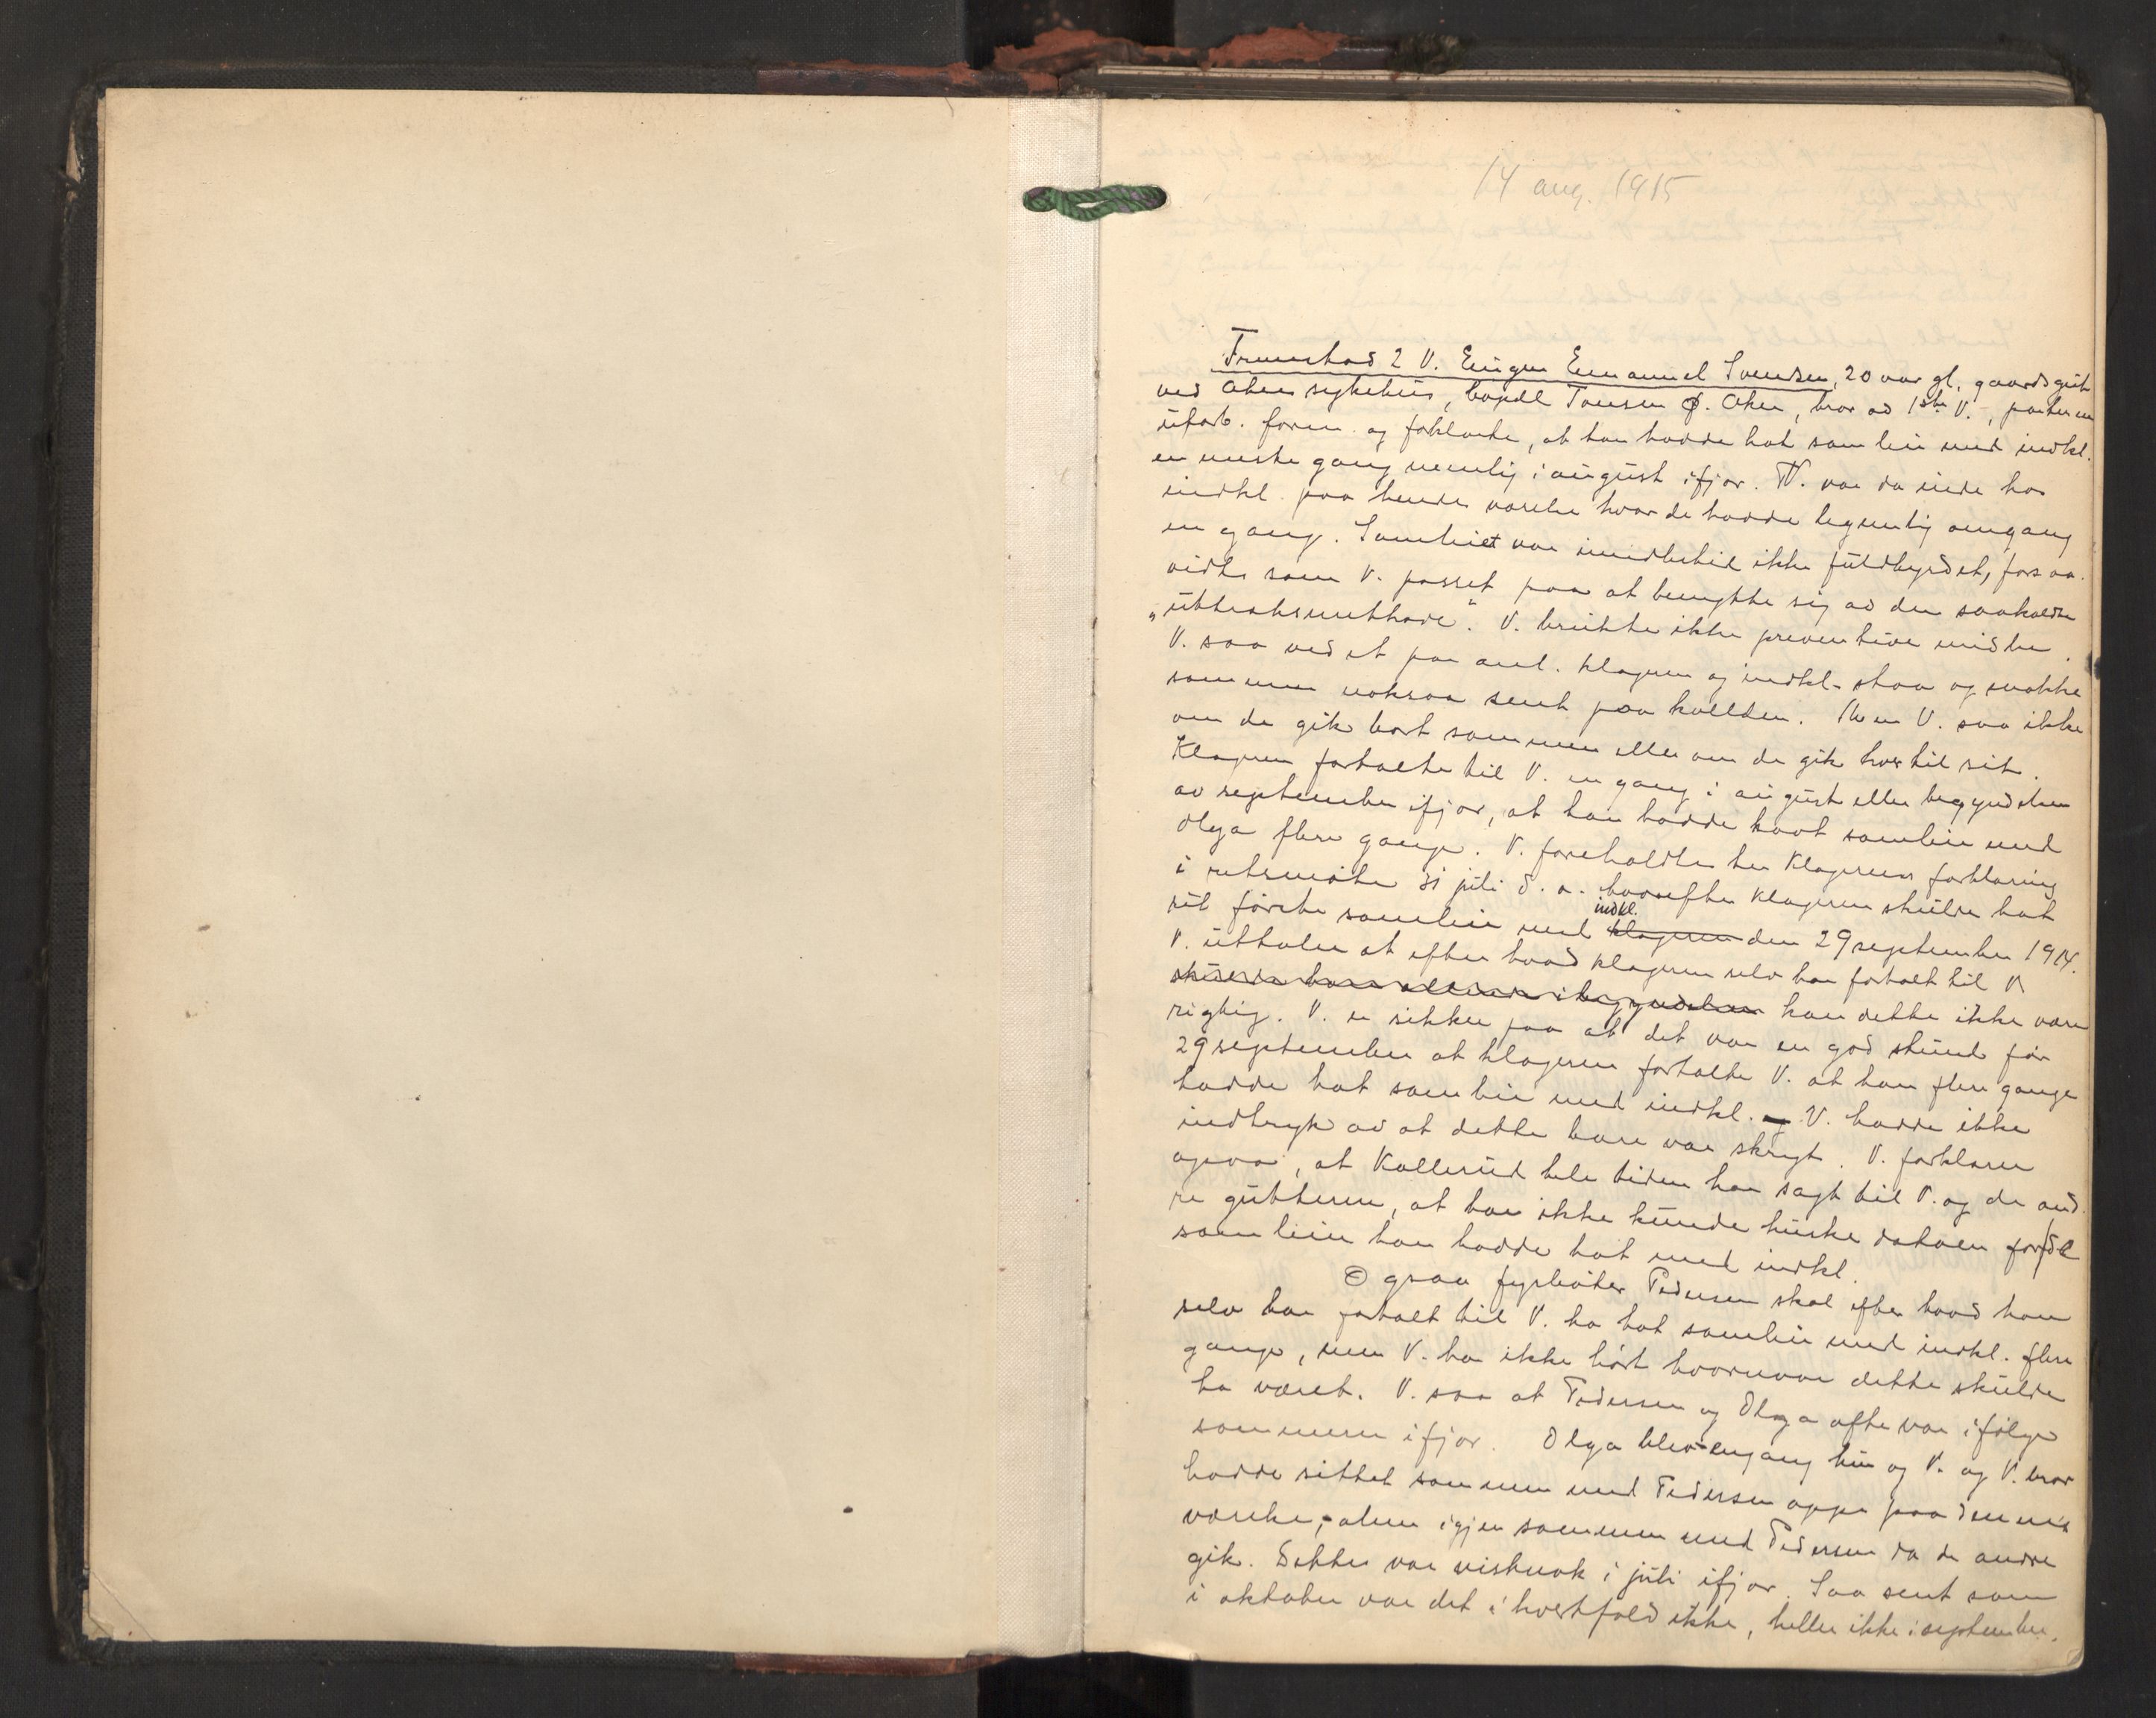 14 aug. 1915
Fremstod 2 V. Eugen Emanuel Svendsen, 20 aar gl. gaardsgut
ved Akers sykehus, bopæl Tonsen Ø. Aker, bror av 1ste V.,
utals. form. og forklarte, at han hadde hat samleie med indkl.
en eneste gang nemlig i august ifjor. V. var da inde hos
indkl. paa hendes værelse hvor de hadde legemlig omgang
en gang. Samleiet var imidlertid ikke fuldbyrdet, forsaa-
vidt som V. passet paa at benytte sig av den saakaldte
"uttræksmethode". V. brukte ikke preventive midler.
V. saa ved et par anl. klageren og indkl. staa og snakke
sammen noksaa sent paa kvelden. Men V. saa ikke
om de gik bort sammen eller om de gik hver til sit.
Klageren fortalte til V. en gang i august eller begyndelsen
av september ifjor, at han hadde havt samleie med
Olga flere gange. V. foreholdtes her Klagerens forklaring
i retsmøte 31 juli d. a. hvorefter klageren skulde hat
sit første samleie med klageren indkl. den 29 september 1914.
V. uttaler at efter hvad klageren selv har fortalt til V.
skulde i begyndelsen kan dette ikke være
rigtig. V. er sikker paa at det var en god stund før
29 september at klageren fortalte V. at han flere gange
hadde hat samleie med indkl. og V. hadde ikke
indtryk av at dette bare var skryt. V. forklarer
ogsaa, at Kollerud hele tiden har sagt til V. og de and-
re gutterne, at han ikke kunde huske datoen for de
samleier han hadde hat med indkl.
Ogsaa fyrbøter Pedersen skal efter hvad han
selv har fortalt til V. ha hat samleie med indkl. flere
gange, men V. har ikke hørt hvornaar dette skulde
ha været. V. saa at Pedersen og Olga ofte var ifølge
sommeren ifjor. Olga blev engang hun og V. og V. bror
hadde sittet sammen med Pedersen oppe paa dennes
værelse, alene igjen sammen med Pedersen da de andre
gik. Dette var vistnok i juli ifjor. Saa sent som
i oktober var det i hvertfald ikke, heller ikke i september.